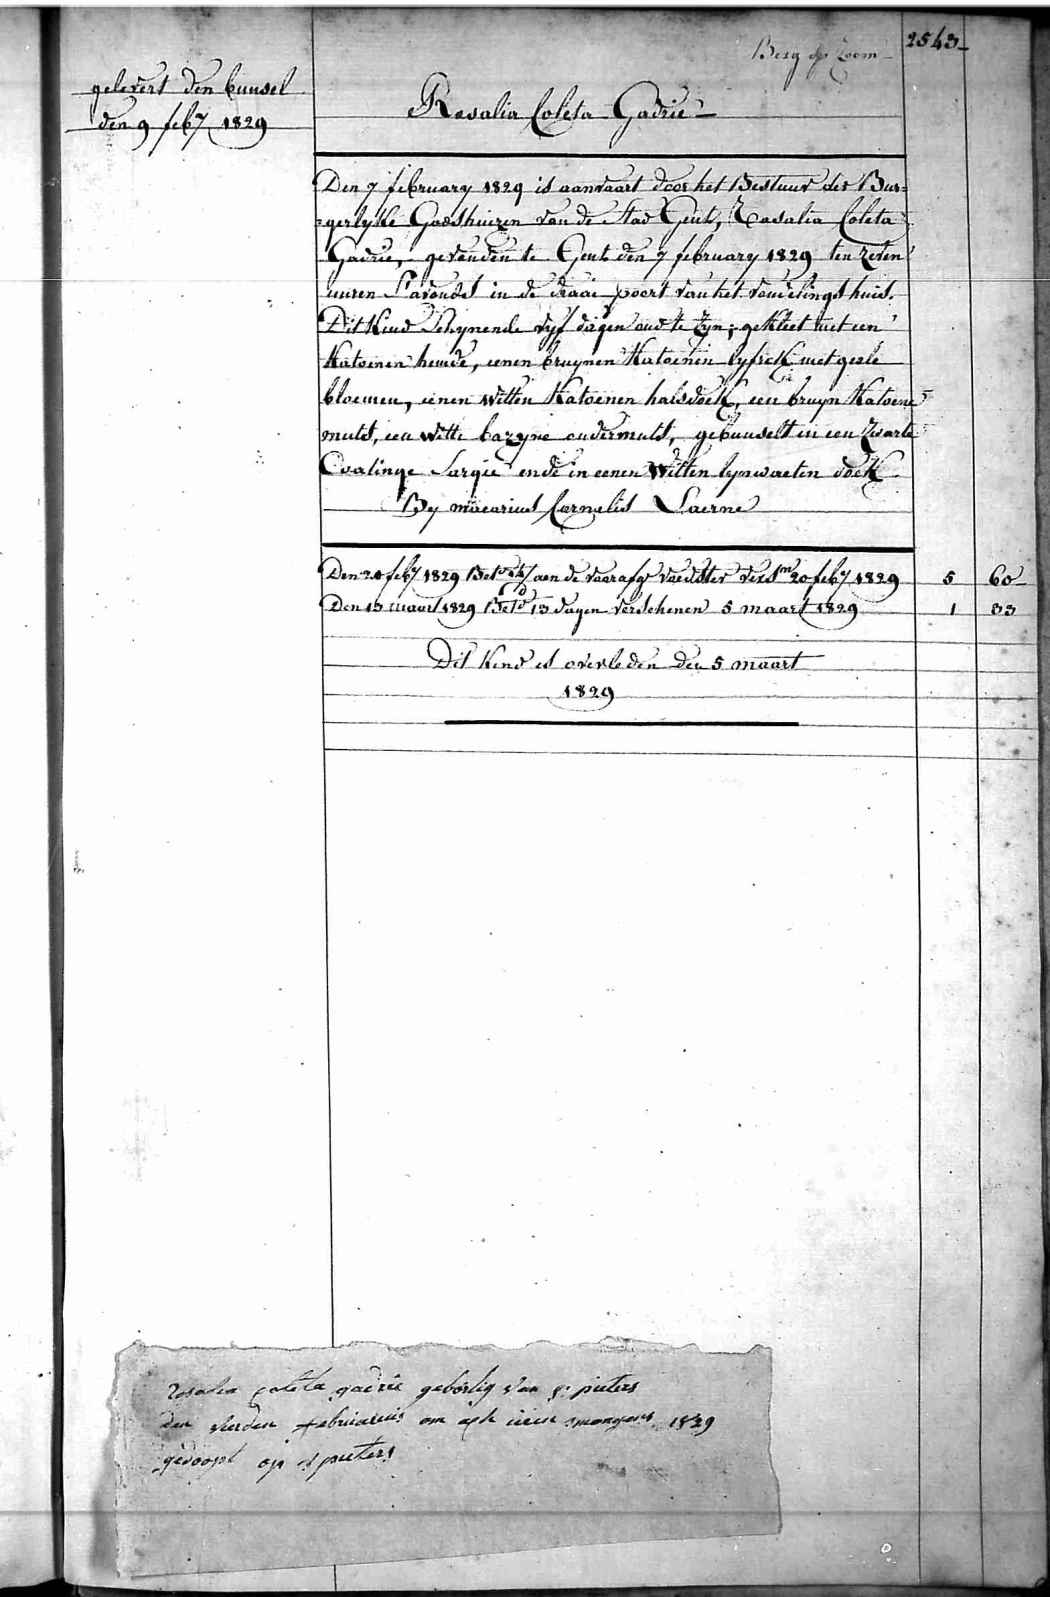 2543
Berg op Zoom
gelevert den bunsel
den 9 feby 1829
Rosalia Coleta Gadrie
Den 7 february 1829 is aanvaart door het Bestuur der Bur=
=gerlyke Godshuizen van de Stad Gent, Rosalia Coleta
Gadrie, gevonden te Gent den 7 february 1829 ten zeven
uuren S'avonds in de draai poort van het vondelingshuis.
Dit Kind Schynende vyf dagen oud te zyn; gekleet met een
Katoenen hemde, eenen bruynen Katoenen lyfrck met geele
bloemen, eenen witten Katoenen halsdoek, een bruyn Katoene
muts, een witte bazyne ondermuts, gebunselt in een Zwarte
Sargie ende in eenen Witten lynwaeten doek
By macarius Cornelis Laerne
Den 20 feby 1829 Bet aen de voorafg voedster vers 20 feby 1829 5 60
Den 13 maart 1829 Bet 13 dagen verschenen 5 maart 1829 1 33
Dit Kind is overleden den 5 maart
1829
Rosalia coleta gadrie geborlig van st pieters
den vierden februarius om agt uren smorgens 1829
gedoopt op st pieters